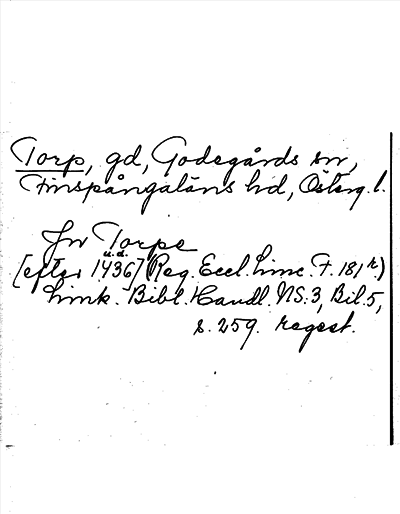 Torp, gd, Godegårds sn,
Finspångaläns hd, Österg. l.
Jn Torpe
u.å.
[efter 1436] (Reg. Eccl. Linc. F. 181 r.)
Link. Bibl. Handl. NS:3, Bil. 5,
s. 259. regest.